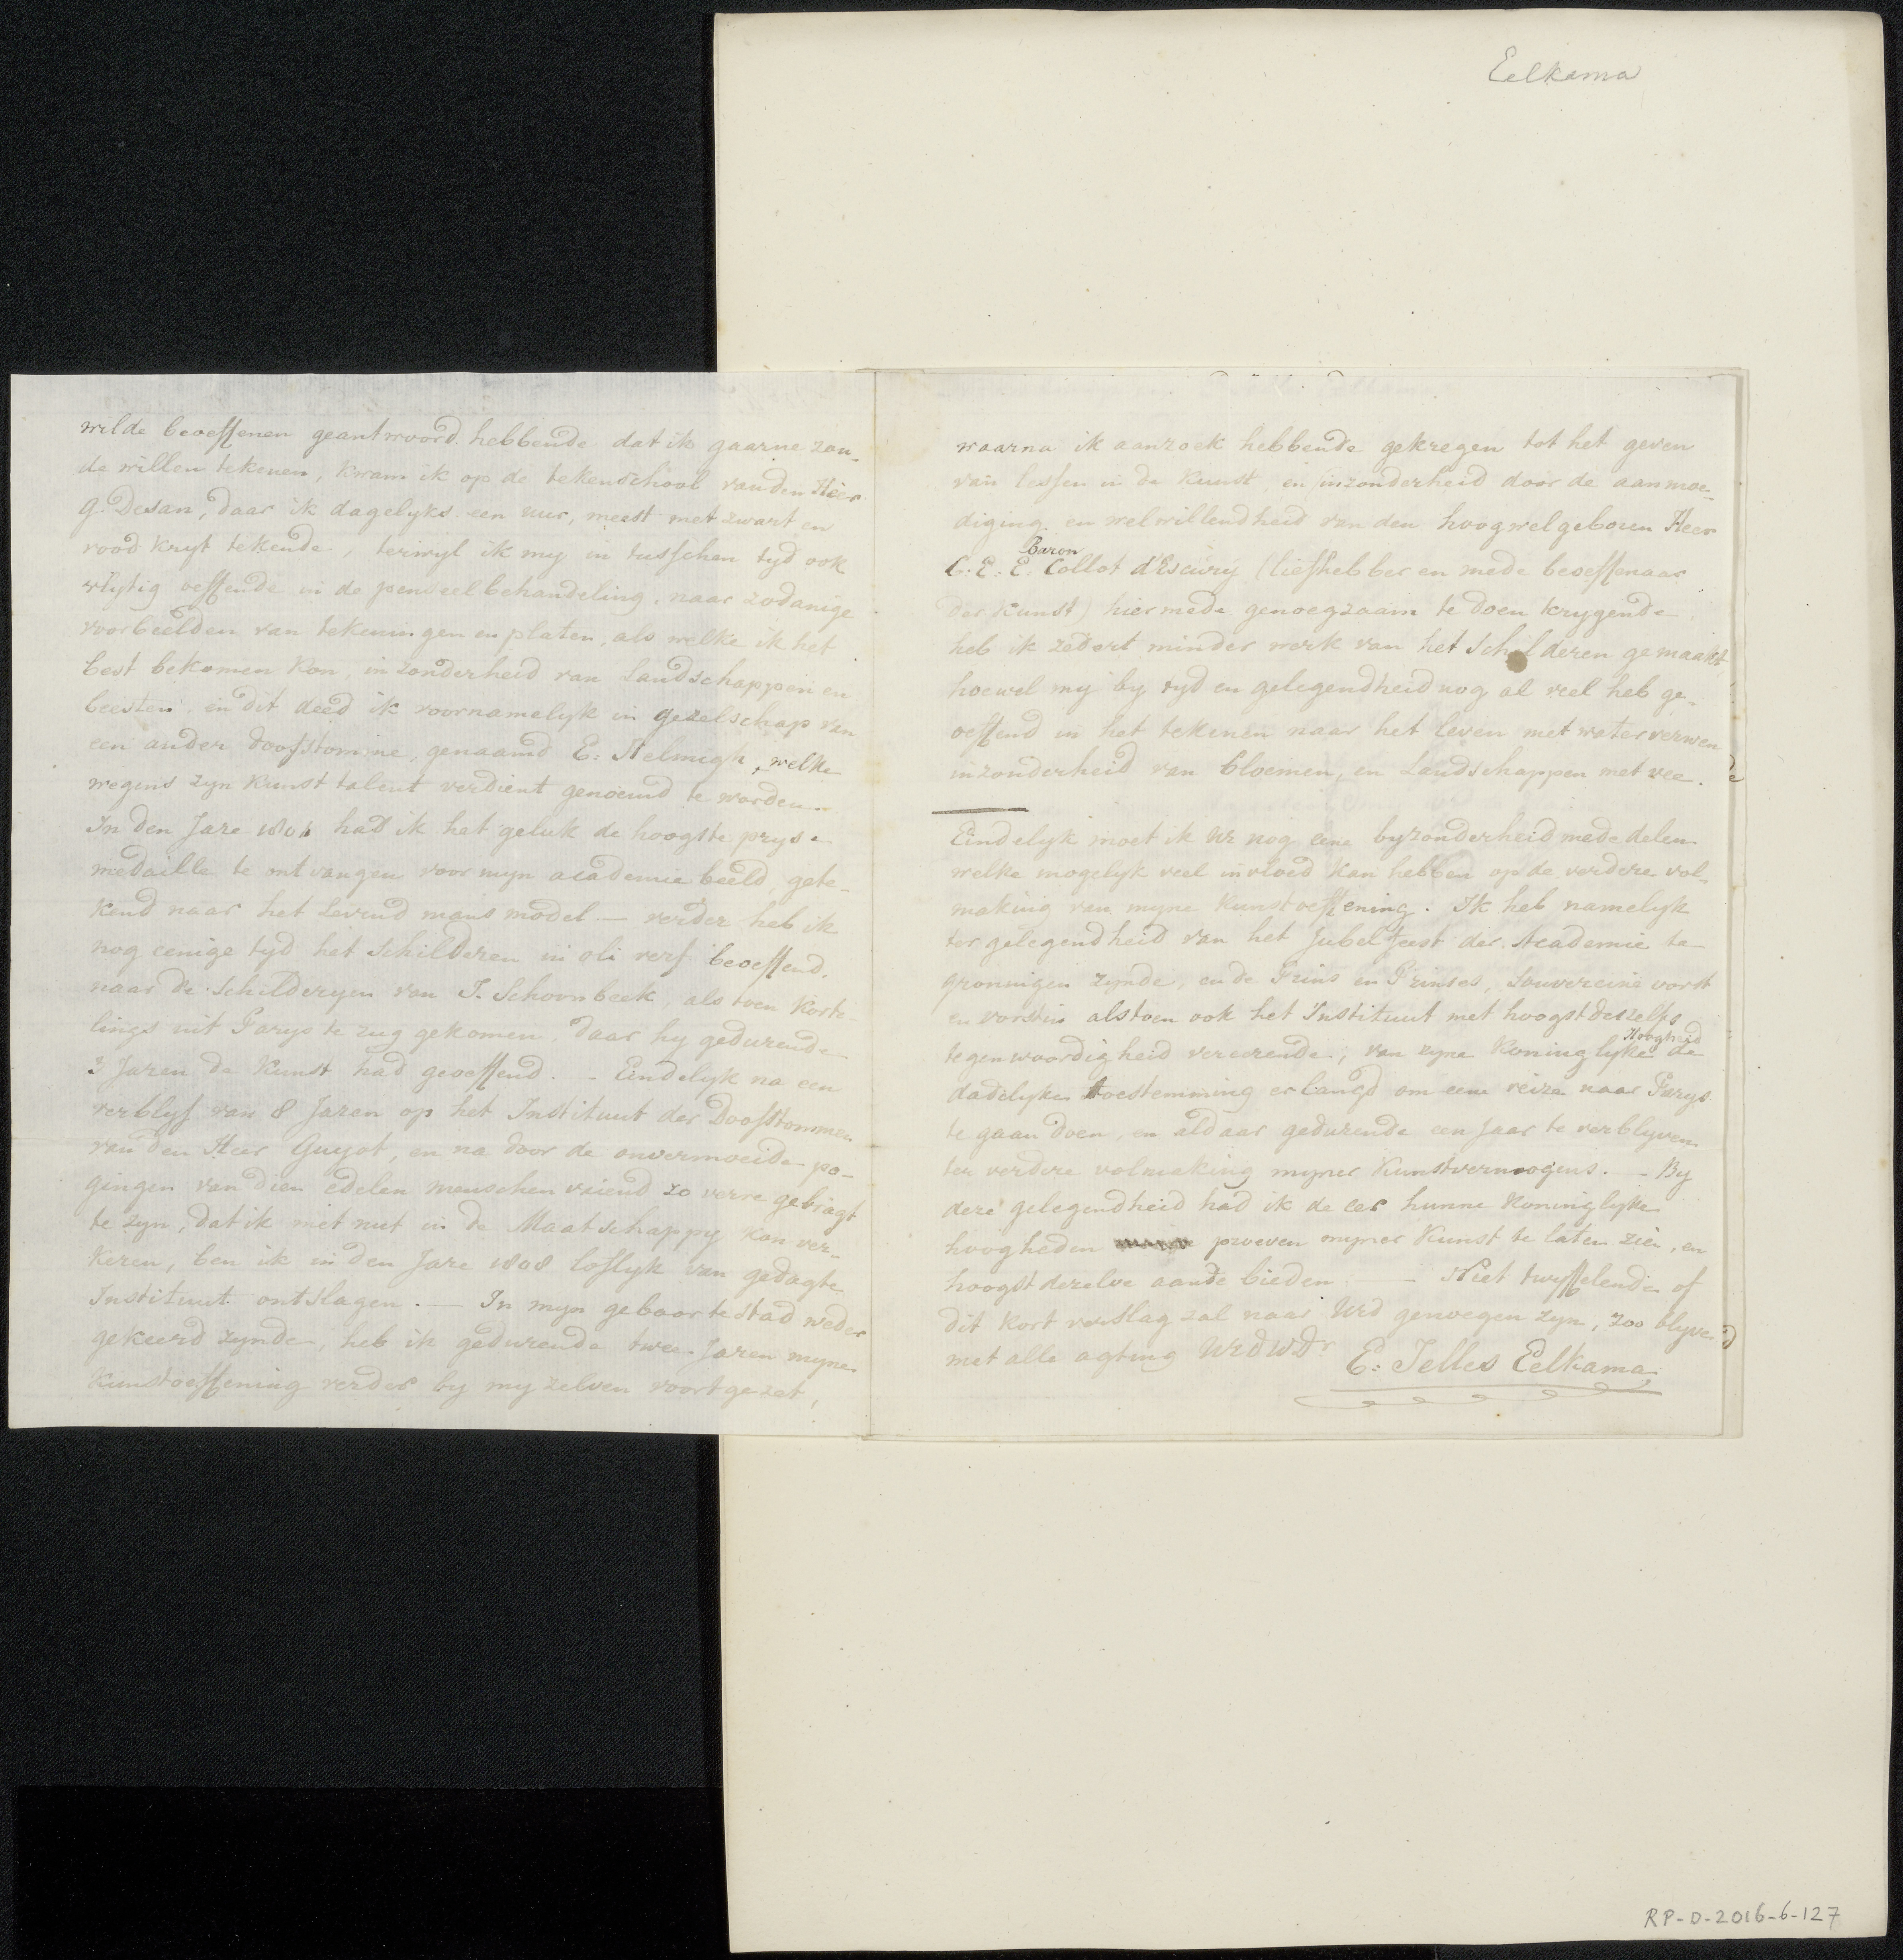 Eelkama
wilde beoeffenen geantwoord hebbende dat ik gaarne zou-
de willen tekenen, kwam ik op de tekenschool van den Heer
G. Desan, daar ik dagelyks een uur, meest met zwart en
rood kryt tekende, terwyl ik my in tusschen tyd ook
vlytig oeffende in de penseelbehandeling, naar zodanige
voorbeelden van tekeningen en platen, als welke ik het
best bekomen kon, inzonderheid van Landschappen en
beesten, en dit deed ik voornamelyk in gezelschap van
een ander doofstomme, genaamd E: Helmigh, welke
wegens zyn kunst talent verdient genoemd te worden.
In den Jare had ik het geluk de hoogste prys-
medaille te ontvangen voor myn academie beeld, gete-
kend naar het Levend mans model — verder heb ik
nog eenige tyd het schilderen in oli verf beoeffend,
naar de schilderyen van J. Schoonbeek, als toen korte-
lings uit Parys te rug gekomen daar hy gedurende
3 Jaren de kunst had geoeffend. — Eindelyk na een
verblyf van 8 Jaren op het Instituut der Doofstommen
van den Heer Guyot, en na door de onvermoeide po-
gingen van dien edelen menschen vriend zo verre gebragt
te zyn, dat ik met nut in de Maatschappy kon ver-
keren, ben ik in den Jare 1808 loflyk van gedagte
Instituut ontslagen. — In myn geboorte stad weder
gekeerd zynde, heb ik gedurende twee Jaren myne
kunstoeffening verder by my zelven voortgezet,
waarna ik aanzoek hebbende gekregen tot het geven
van lessen in de kunst, en inzonderheid door de aanmoe-
diging en welwillendheid van den hoogwelgeboren Heer
Baron
C. E. E. Collot d'Escury (liefhebber en mede beoeffenaar
der kunst) hiermede genoegzaam te doen krygende
heb ik zedert minder werk van het schilderen gemaakt
hoewel my by tyd en gelegendheid nog al veel heb ge-
oeffend in het tekenen naar het leven met waterverwen
inzonderheid van bloemen, en Landschappen met vee.
Eindelyk moet ik nog eene byzonderheid mededelen
welke mogelyk veel invloed kan hebben op de verdere vol-
making van myne kunstoeffening: Ik heb namelyk
ter gelegendheid van het Jubelfeest der Academie te
groningen zynde, en de Prins en Prinses, souvereine vorst
en vorstin alstoen ook het Instituut met hoogstdeszelfs
Hoogheid
tegenwoordigheid vereerende, van zyne koninglyke de
dadelyke toestemming erlangd om eene reize naar Parys
te gaan doen, en aldaar gedurende een Jaar te verblyven
ter verdere volmaking myner kunstvermogens. — By
deze gelegendheid had ik de eer hunne koninglyke
hoogheden proeven myner kunst te laten zien, en
hoogst dezelve aan te bieden. — Niet twyffelende of
dit kort verslag zal naar UEd genoegen zyn, zoo blyve
met alle agting UEdWDr
E: Jelles Eelkama
RP-D-2016-6-127